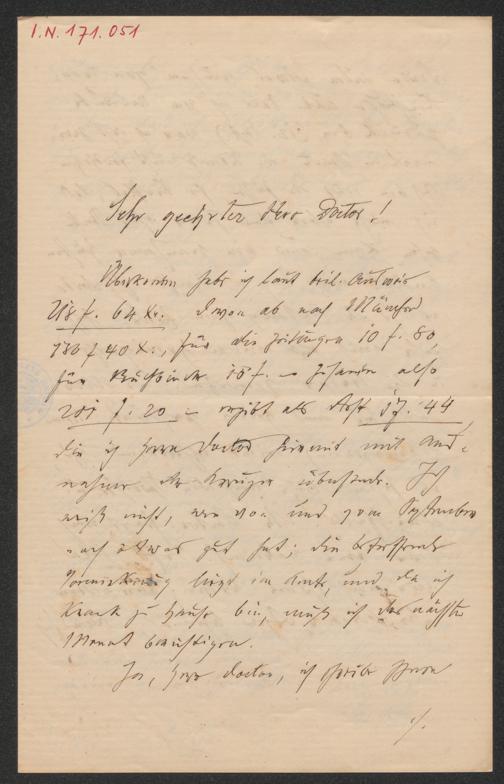 I.N. 171.051
Sehr geehrter Herr Doctor!
habe ich laut beil. Ausweis
218 f. 64 Xr. davon ab nach München
f 40 X., für die Zeitungen 10 f. 80,
für 18 f. – zusammen also
201 f. 20 – ergibt als Rest 17. 44
die ich Herrn Doctor hiermit mit Aus-
nahme der Kreuzer übersende. Ich
weiß nicht, wer von und vom September
noch etwas gut hat; die betreffende
liegt im Amte, und da ich
krank zu Hause bin, muß ich das nächste
Monat berichtigen.
Ja, Herr Doctor, ich schreibe Ihnen
./.